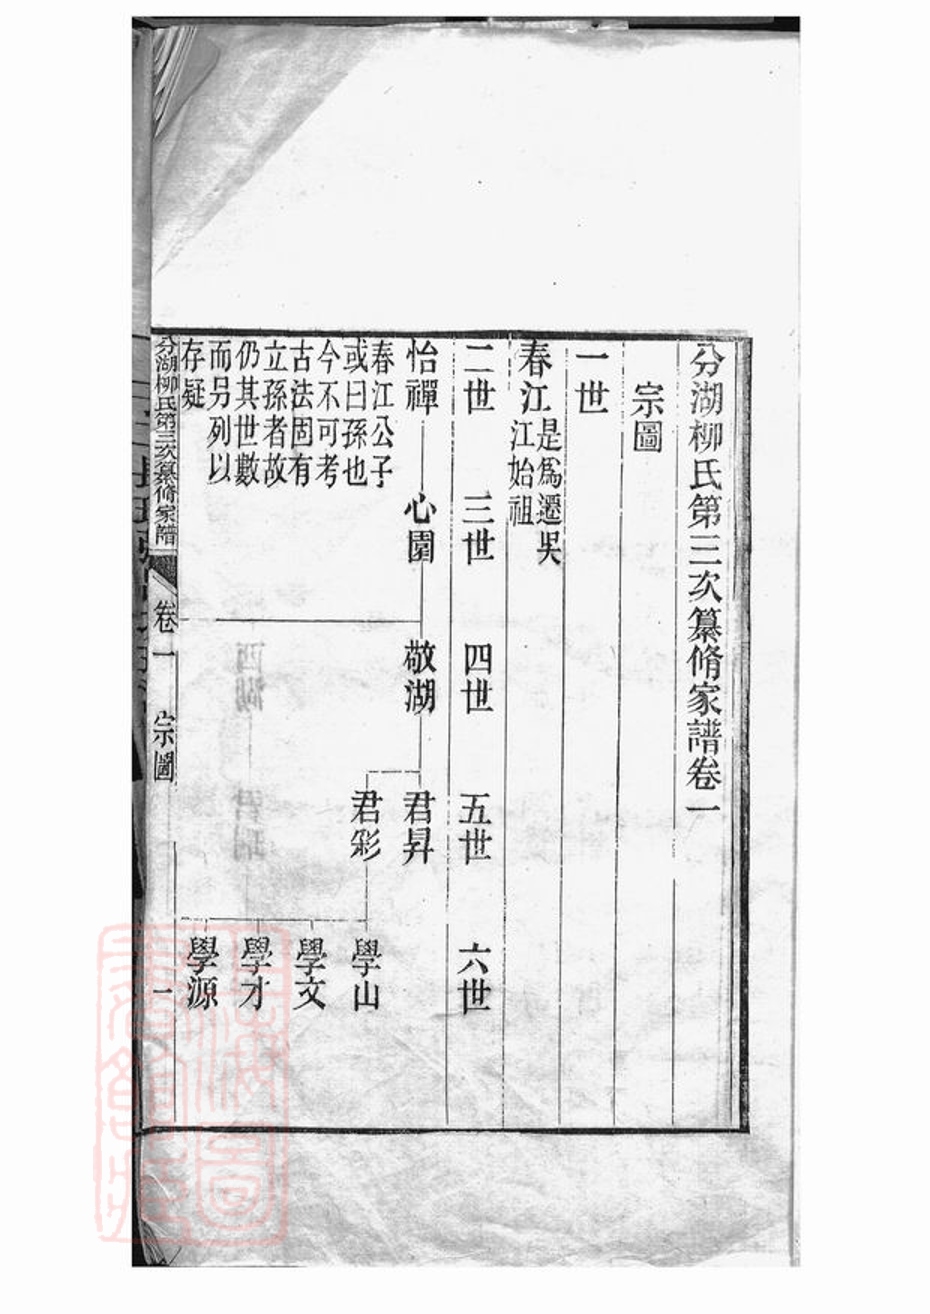 分湖柳氏第三次纂脩家譜卷一
宗圖
一世
春江
是爲遷吳
江始祖
二世 三世 四世 五世 六世
怡禪 心園 敬湖 君昇
春江公子
或曰孫也
今不可考
古法固有
立孫者故
仍其世數
而另列以
存疑
君彩 學山
學文
學才
學源
分湖柳氏第三次纂脩家譜 卷一 宗圖 一